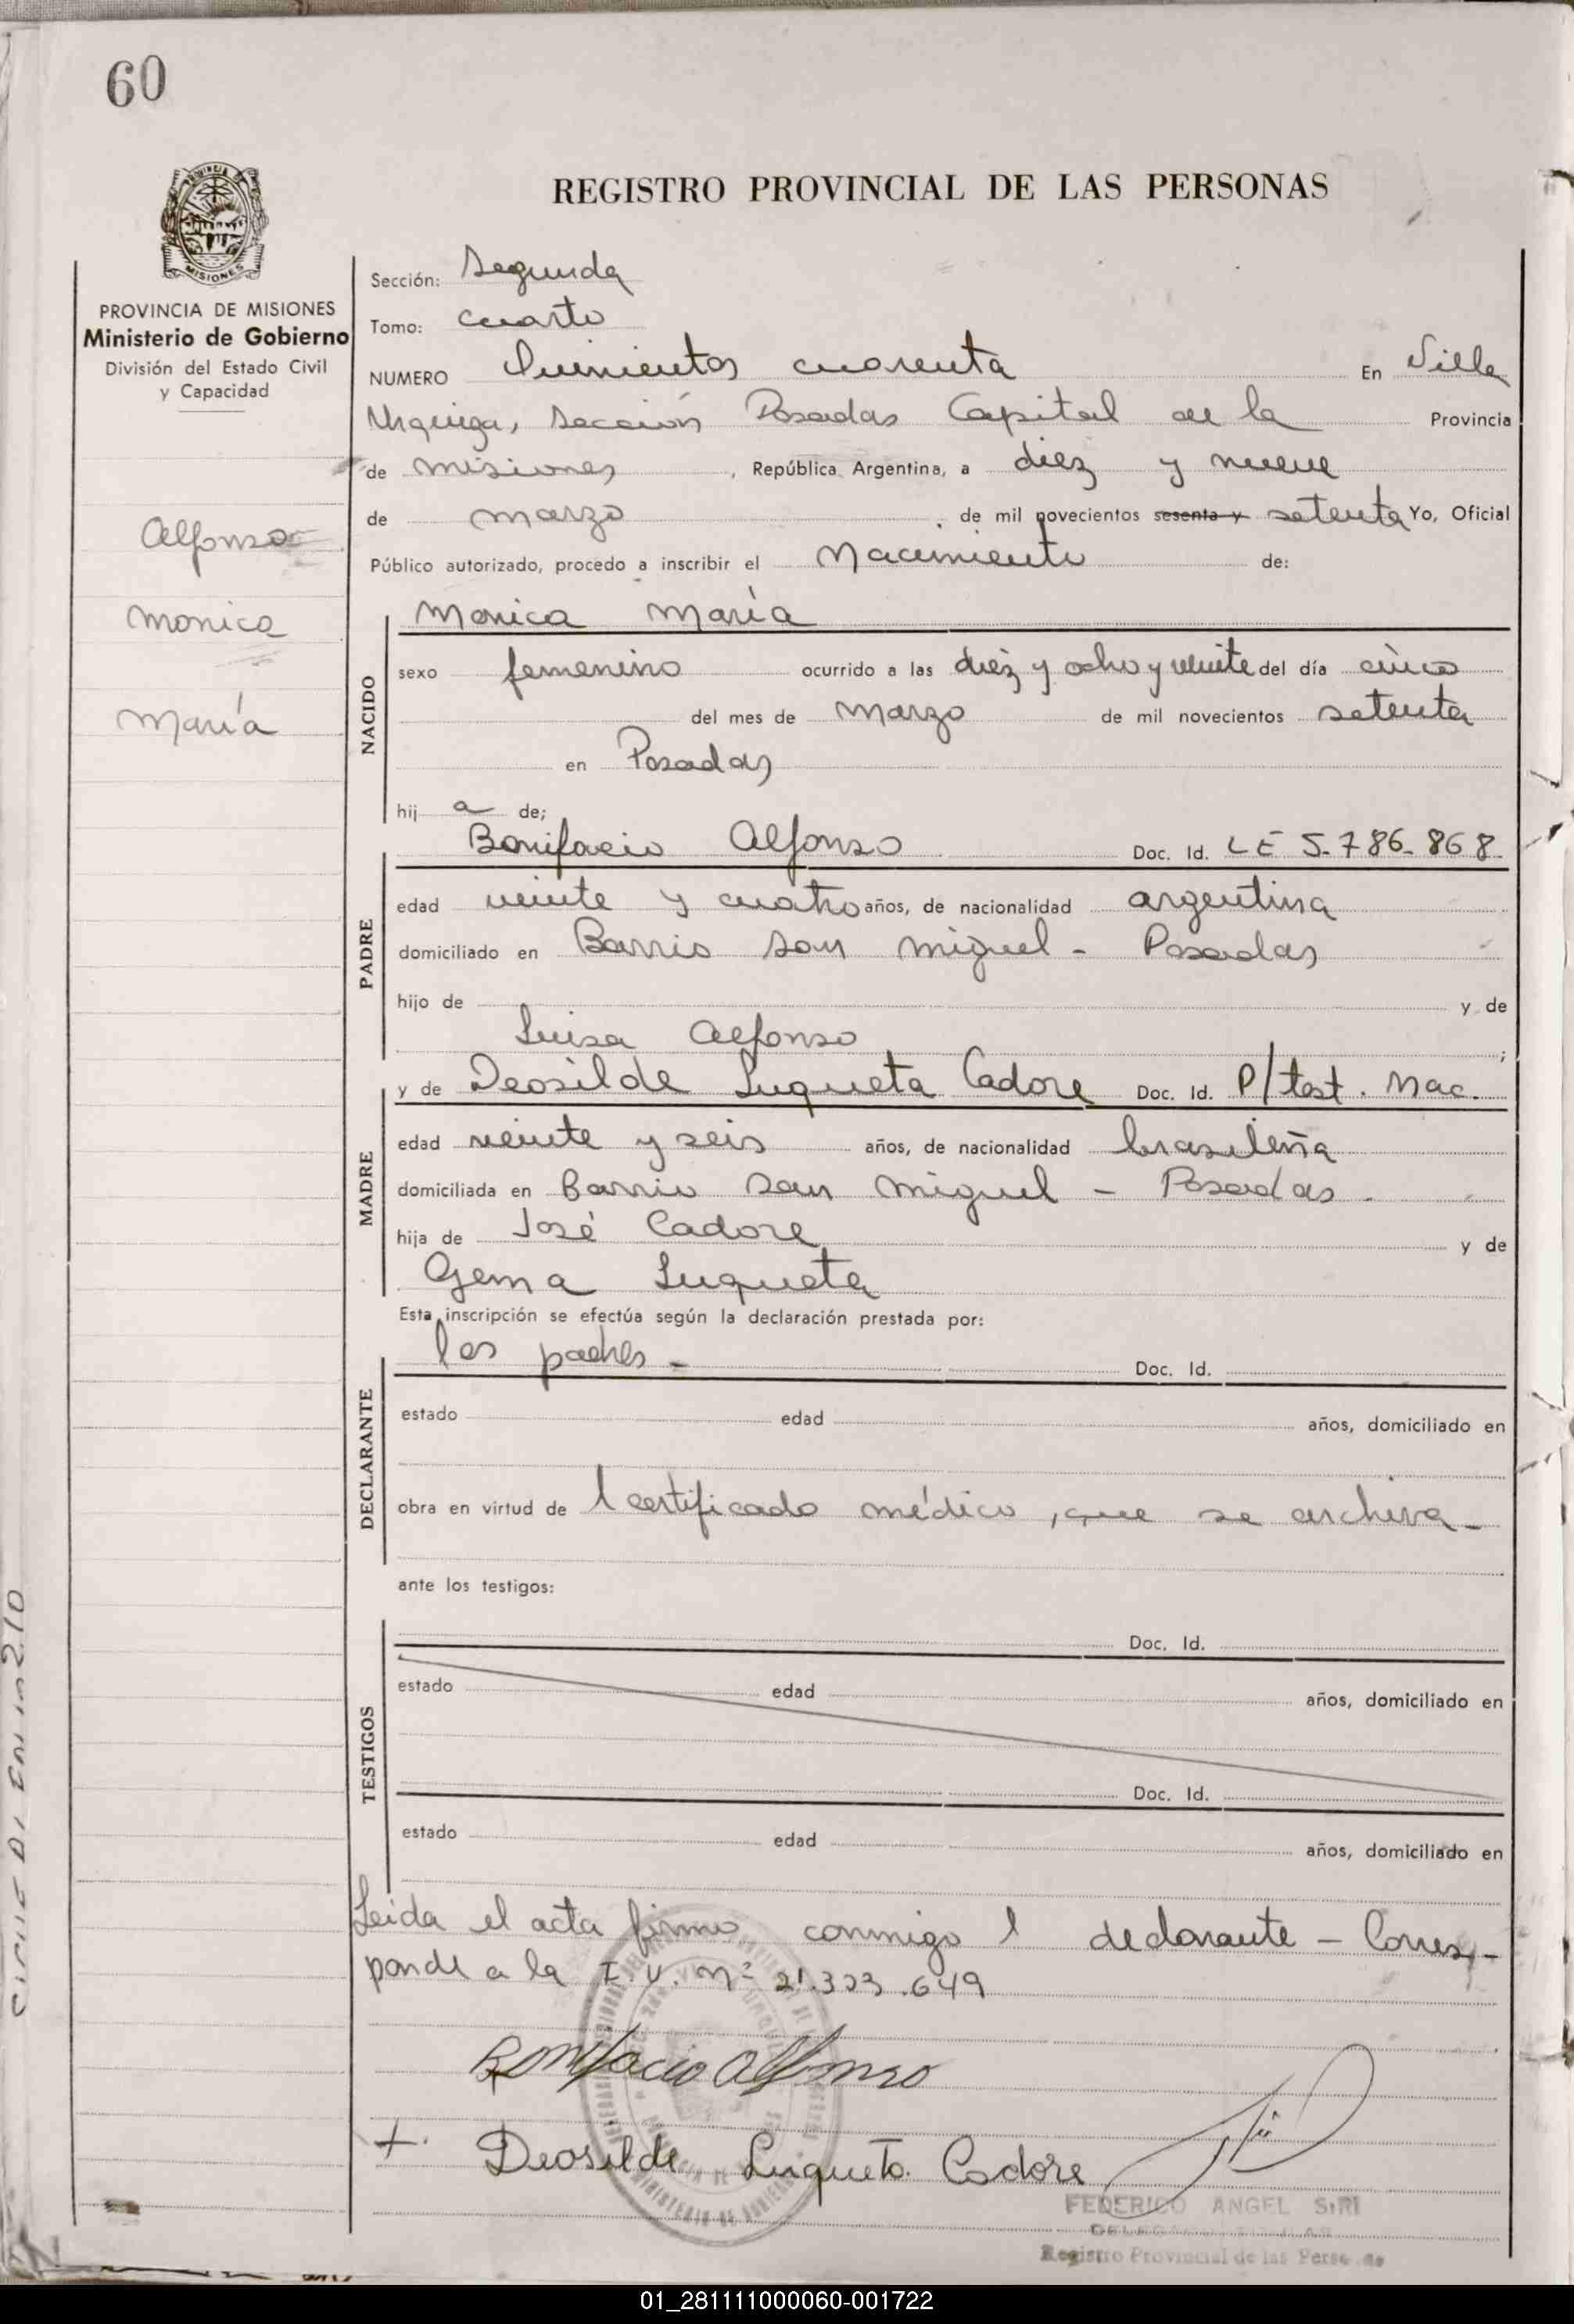 60
REGISTRO PROVINCIAL DE LAS PERSONAS
MISIONES
PROVINCIA DE MISIONES
Ministerio de Gobierno
División del Estado Civil
y Capacidad
Alfonso
Monica
María
Sección: Segunda
Tomo: cuarto
NUMERO Quinientos cuarenta En Villa
Urquiza, Sección Posadas Capital de la Provincia
de misiones, República Argentina, a diez y nueve
de marzo, de mil novecientos sesenta y setenta Yo, Oficial
Público autorizado, procedo a inscribir el Nacimiento de:
NACIDO
Monica María
sexo femenino ocurrido a las diez y ocho y veinte del día cinco
del mes de Marzo de mil novecientos setenta
en Posadas
hij a de;
PADRE
Bonifacio Alfonso Doc. Id. LE 5.786.868
edad veinte y cuatro años, de nacionalidad argentina
domiciliado en Barrio San Miguel - Posadas
hijo de y de
Luisa Alfonso;
MADRE
y de Deosilde Luqueta Cadore Doc. Id. P/test. Nac.
edad veinte y seis años, de nacionalidad brasileña
domiciliada en Barrio San Miguel - Posadas.
hija de José Cadore y de
Gema Luqueta
Esta inscripción se efectúa según la declaración prestada por:
DECLARANTE
los padres - Doc. Id.
estado edad años, domiciliado en
obra en virtud de l certificado médico, que se archiva-
ante los testigos:
TESTIGOS
Doc. Id.
estado edad años, domiciliado en
Doc. Id.
estado edad años, domiciliado en
Leida el acta firmo conmigo l declarante - Corres-
ponde a la I.U. Nº 21.323.649
Bonifacio Alfonso
+. Deosilde Luqueta Cadore
FEDERICO ANGEL SIRI
Registro Provincial de las Personas
01_281111000060-001722